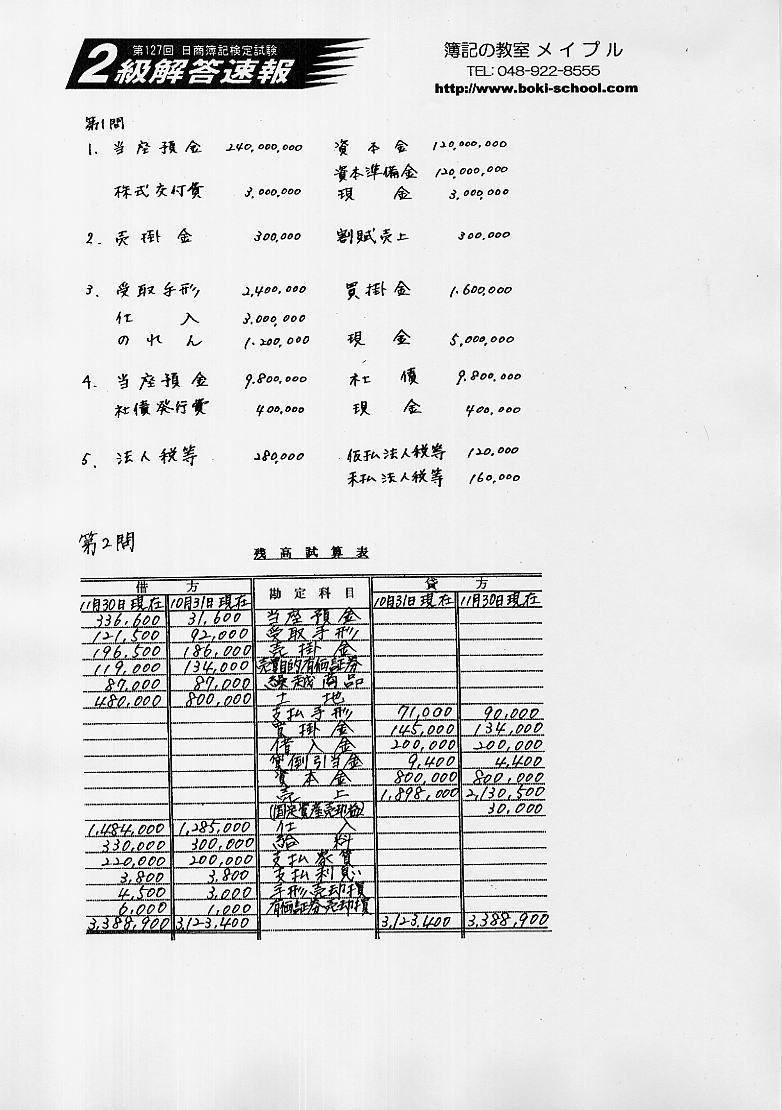 第127回 日商簿記検定試験
2級解答速報
簿記の教室 メイプル
TEL: 048-922-8555
http://www.boki-school.com
第1問
1. 当座預金 240,000,000 資本金 120,000,000
資本準備金 120,000,000
株式交付費 3,000,000 現金 3,000,000
2. 売掛金 300,000 割賦売上 300,000
3. 受取手形 2,400,000 買掛金 1,600,000
仕入 3,000,000
のれん 1,200,000 現金 5,000,000
4. 当座預金 9,800,000 社債 9,800,000
社債発行費 400,000 現金 400,000
5. 法人税等 280,000 仮払法人税等 120,000
未払法人税等 160,000
第2問
残高試算表
借方 勘定科目 貸方
11月30日現在 10月31日現在 10月31日現在 11月30日現在
336,600 31,600 当座預金
121,500 92,000 受取手形
196,500 186,000 売掛金
119,000 134,000 売買目的有価証券
87,000 87,000 繰越商品
480,000 800,000 土地
支払手形 71,000 90,000
買掛金 145,000 134,000
借入金 200,000 200,000
貸倒引当金 9,400 4,400
資本金 800,000 800,000
売上 1,898,000 2,130,500
(固定資産売却益) 30,000
1,484,000 1,285,000 仕入
330,000 300,000 給料
220,000 200,000 支払家賃
3,800 3,800 支払利息
4,500 3,000 手形売却損
6,000 1,000 有価証券売却損
3,388,900 3,123,400 3,123,400 3,388,900